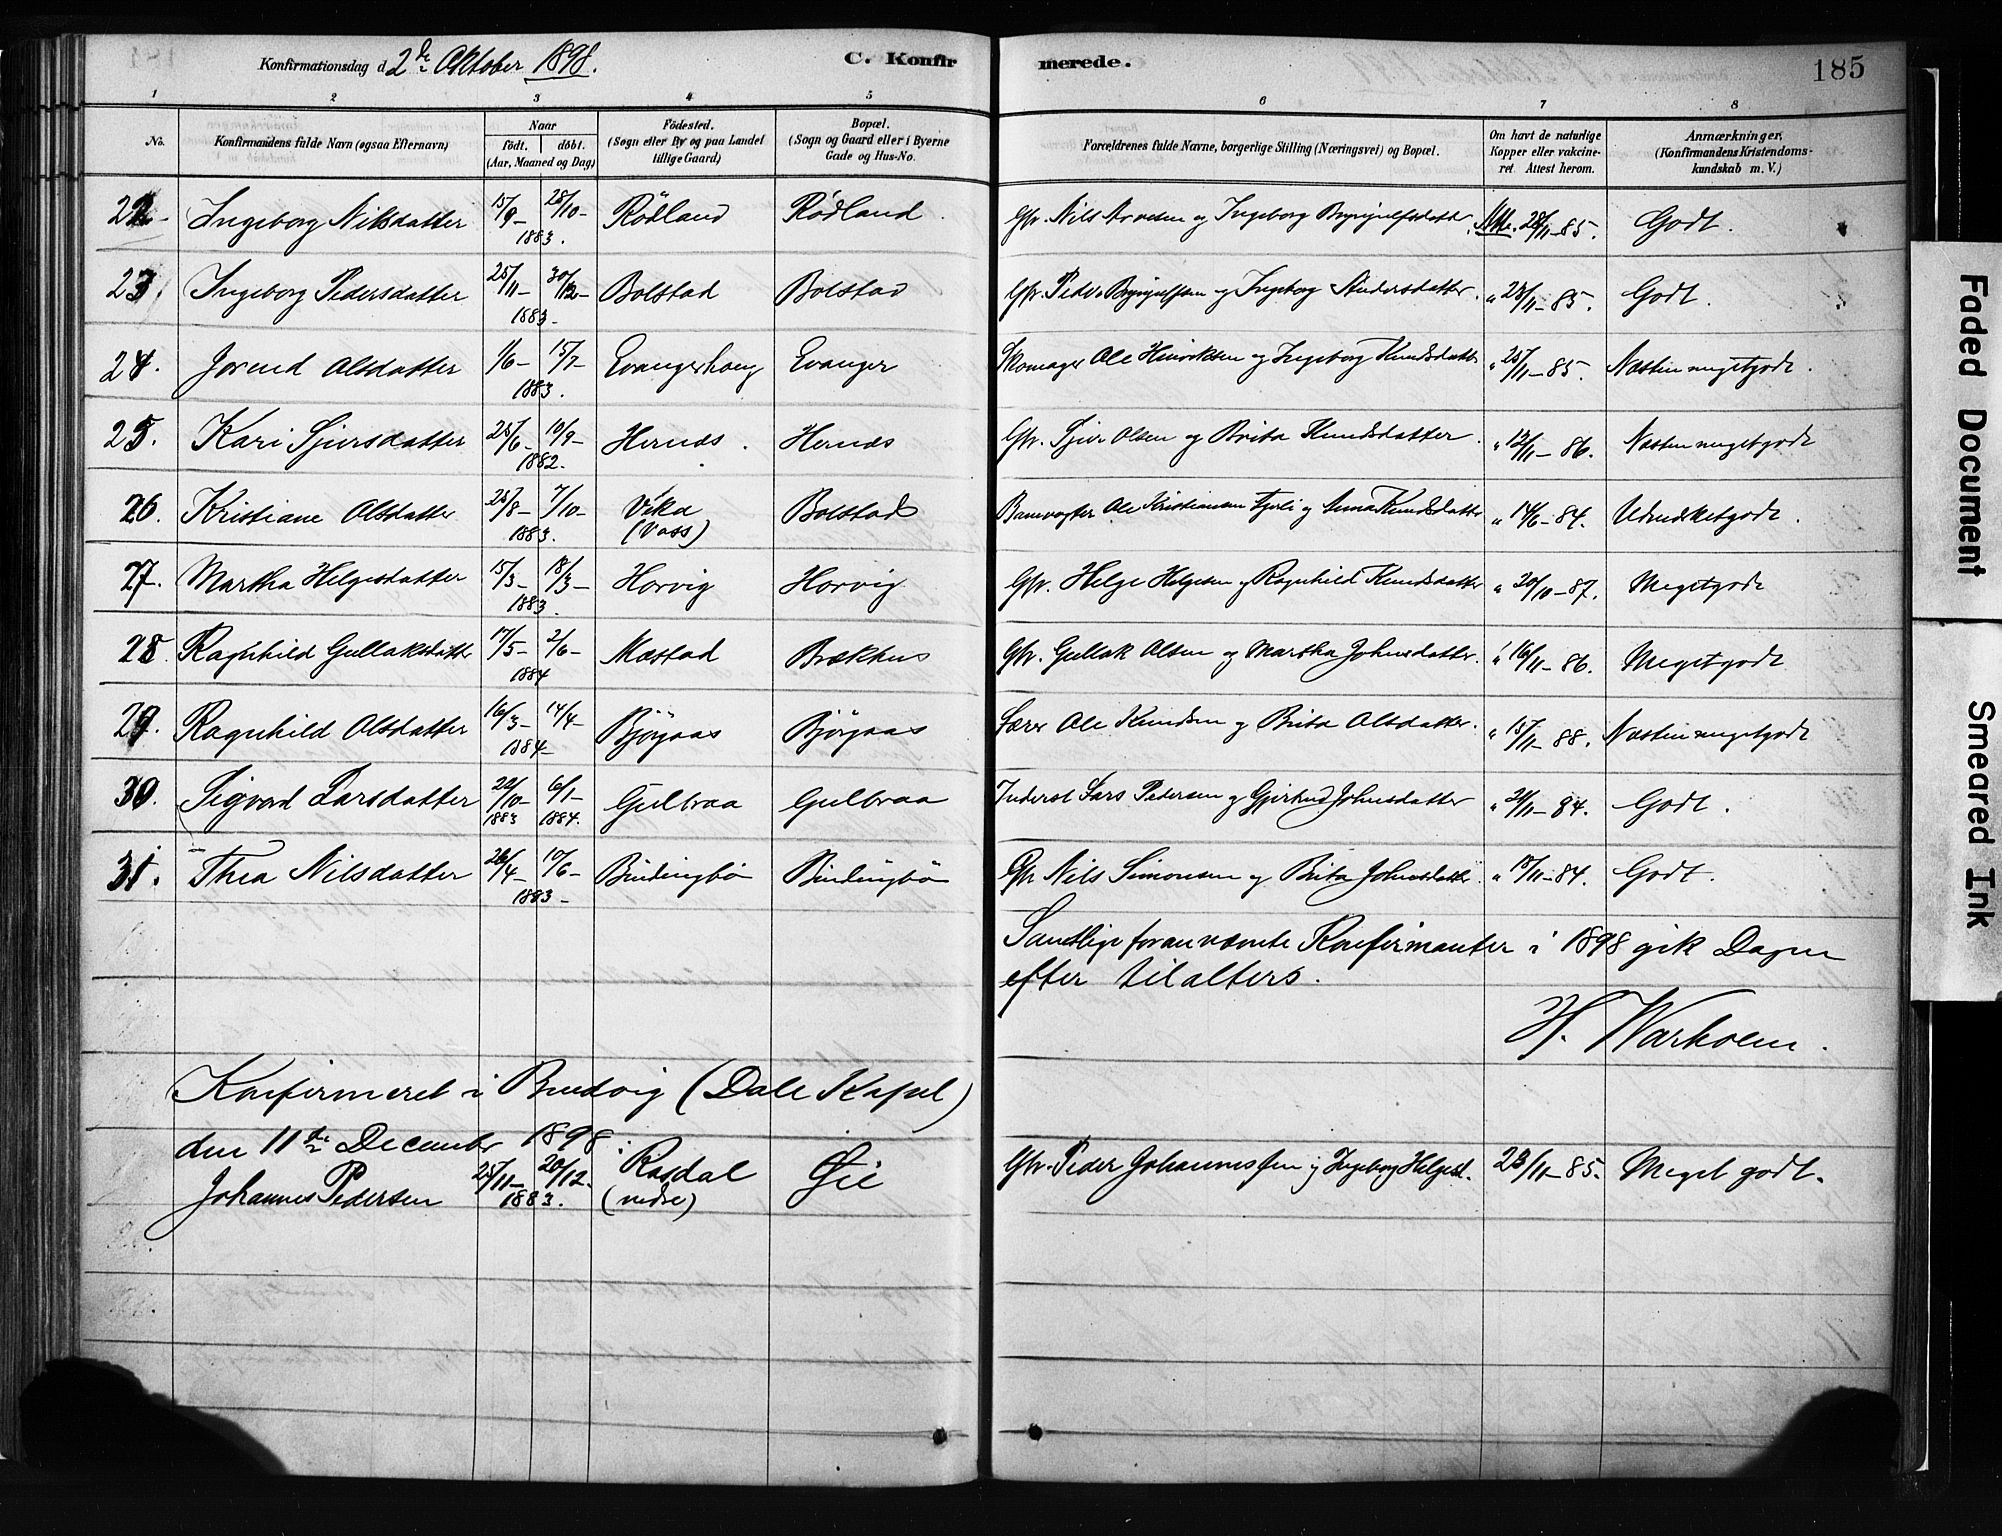 Konfirmationsdag d. 2de Oktober 1898.
C. Konfirmerede.
185
1 2 3 4 5 6 7 8
No.
Konfirmandens fulde Navn (ogsaa Efternavn)
Naar
födt. döbt.
(Aar, Maaned og Dag)
Födested.
(Sogn eller By og paa Landet
tillige Gaard)
Bopæl.
(Sogn og Gaard eller i Byerne
Gade og Hus-No.
Forældrenes fulde Navne, borgerlige Stilling (Næringsvei) og Bopæl.
Om havt de naturlige
Kopper eller vakcine-
ret Attest herom.
Anmærkninger,
(Konfirmandens Kristendoms-
kundskab m. V.)
22. Ingeborg Nilsdatter 15/9 - 28/10 - 1883. Rödland Rödland. Gbr. Nils Arnesen og Ingeborg Brynjulfsdatter 28/11-85. Godt.
23. Ingeborg Pedersdatter 25/11 - 30/12 - 1883. Bolstad Bolstad Gbr. Peder Brynjulfsen og Ingeborg Andersdatter. " 28/11-85. Godt.
24. Jorend Olsdatter 1/6 - 15/7 - 1883. Evangerhaug Evanger Skomager Ole Henriksen og Ingeborg Knudsdatter " 25/11-85. Næsten megetgodt.
25. Kari Sjursdatter 25/6 - 10/9 - 1882. Hernæs. Hernæs Gbr. Sjur Olsen og Brita Knudsdatter. " 12/11-86. Næsten megetgodt
26. Kristiane Olsdatter 25/8 - 7/10 - 1883. Vika (Voss) Bolstad Banevogter Ole Kristiansen og Anna Knudsdatter " 14/6-84. Udmerketgodt.
27. Martha Helgesdatter 15/3 - 18/3 - 1883. Horvig Horvig Gbr. Helge Helgesen og Ragnhild Knudsdatter " 20/10-87. Megetgodt
28. Ragnhild Gullaksdatter 17/5 - 2/6 - 1884 Mæstad Brækhus Gbr. Gullak Olsen og Martha Johnsdatter. " 16/11-86. Megetgodt
29. Ragnhild Olsdatter 16/3 - 14/4 - 1884 - Bjørgaas Bjørgaas Lærer Ole Knudsen og Brita Olsdatter. " 15/11-88. Næsten megetgodt
30. Sigvord Larsdatter 22/10 - 1883 6/1 - 1884. Gulbraa Gulbraa Inderst Lars Pedersen og Gjertrud Johnsdatter " 21/11-84. Godt.
31. Thea Nilsdatter 26/4 - 10/6 - 1883 - Bindingbø Bindingbø Gbr Nils Simonsen og Brita Johnsdatter. " 18/11-84. Godt.
Samtlige forannævnte Konfirmanter i 1898 gik Dagen
efter tilalters.
H. Warholm.
Konfirmeret i Brudvig (Dale Kapel)
den 11te December 1898:
Johannes Pedersen 25/11 - 20/12. 1883. Rasdal (nedre) Øie Gbr. Peder Johannessen og Ingeborg Helgesd. 23/11-85. Meget godt.
Faded Document
Smeared Ink